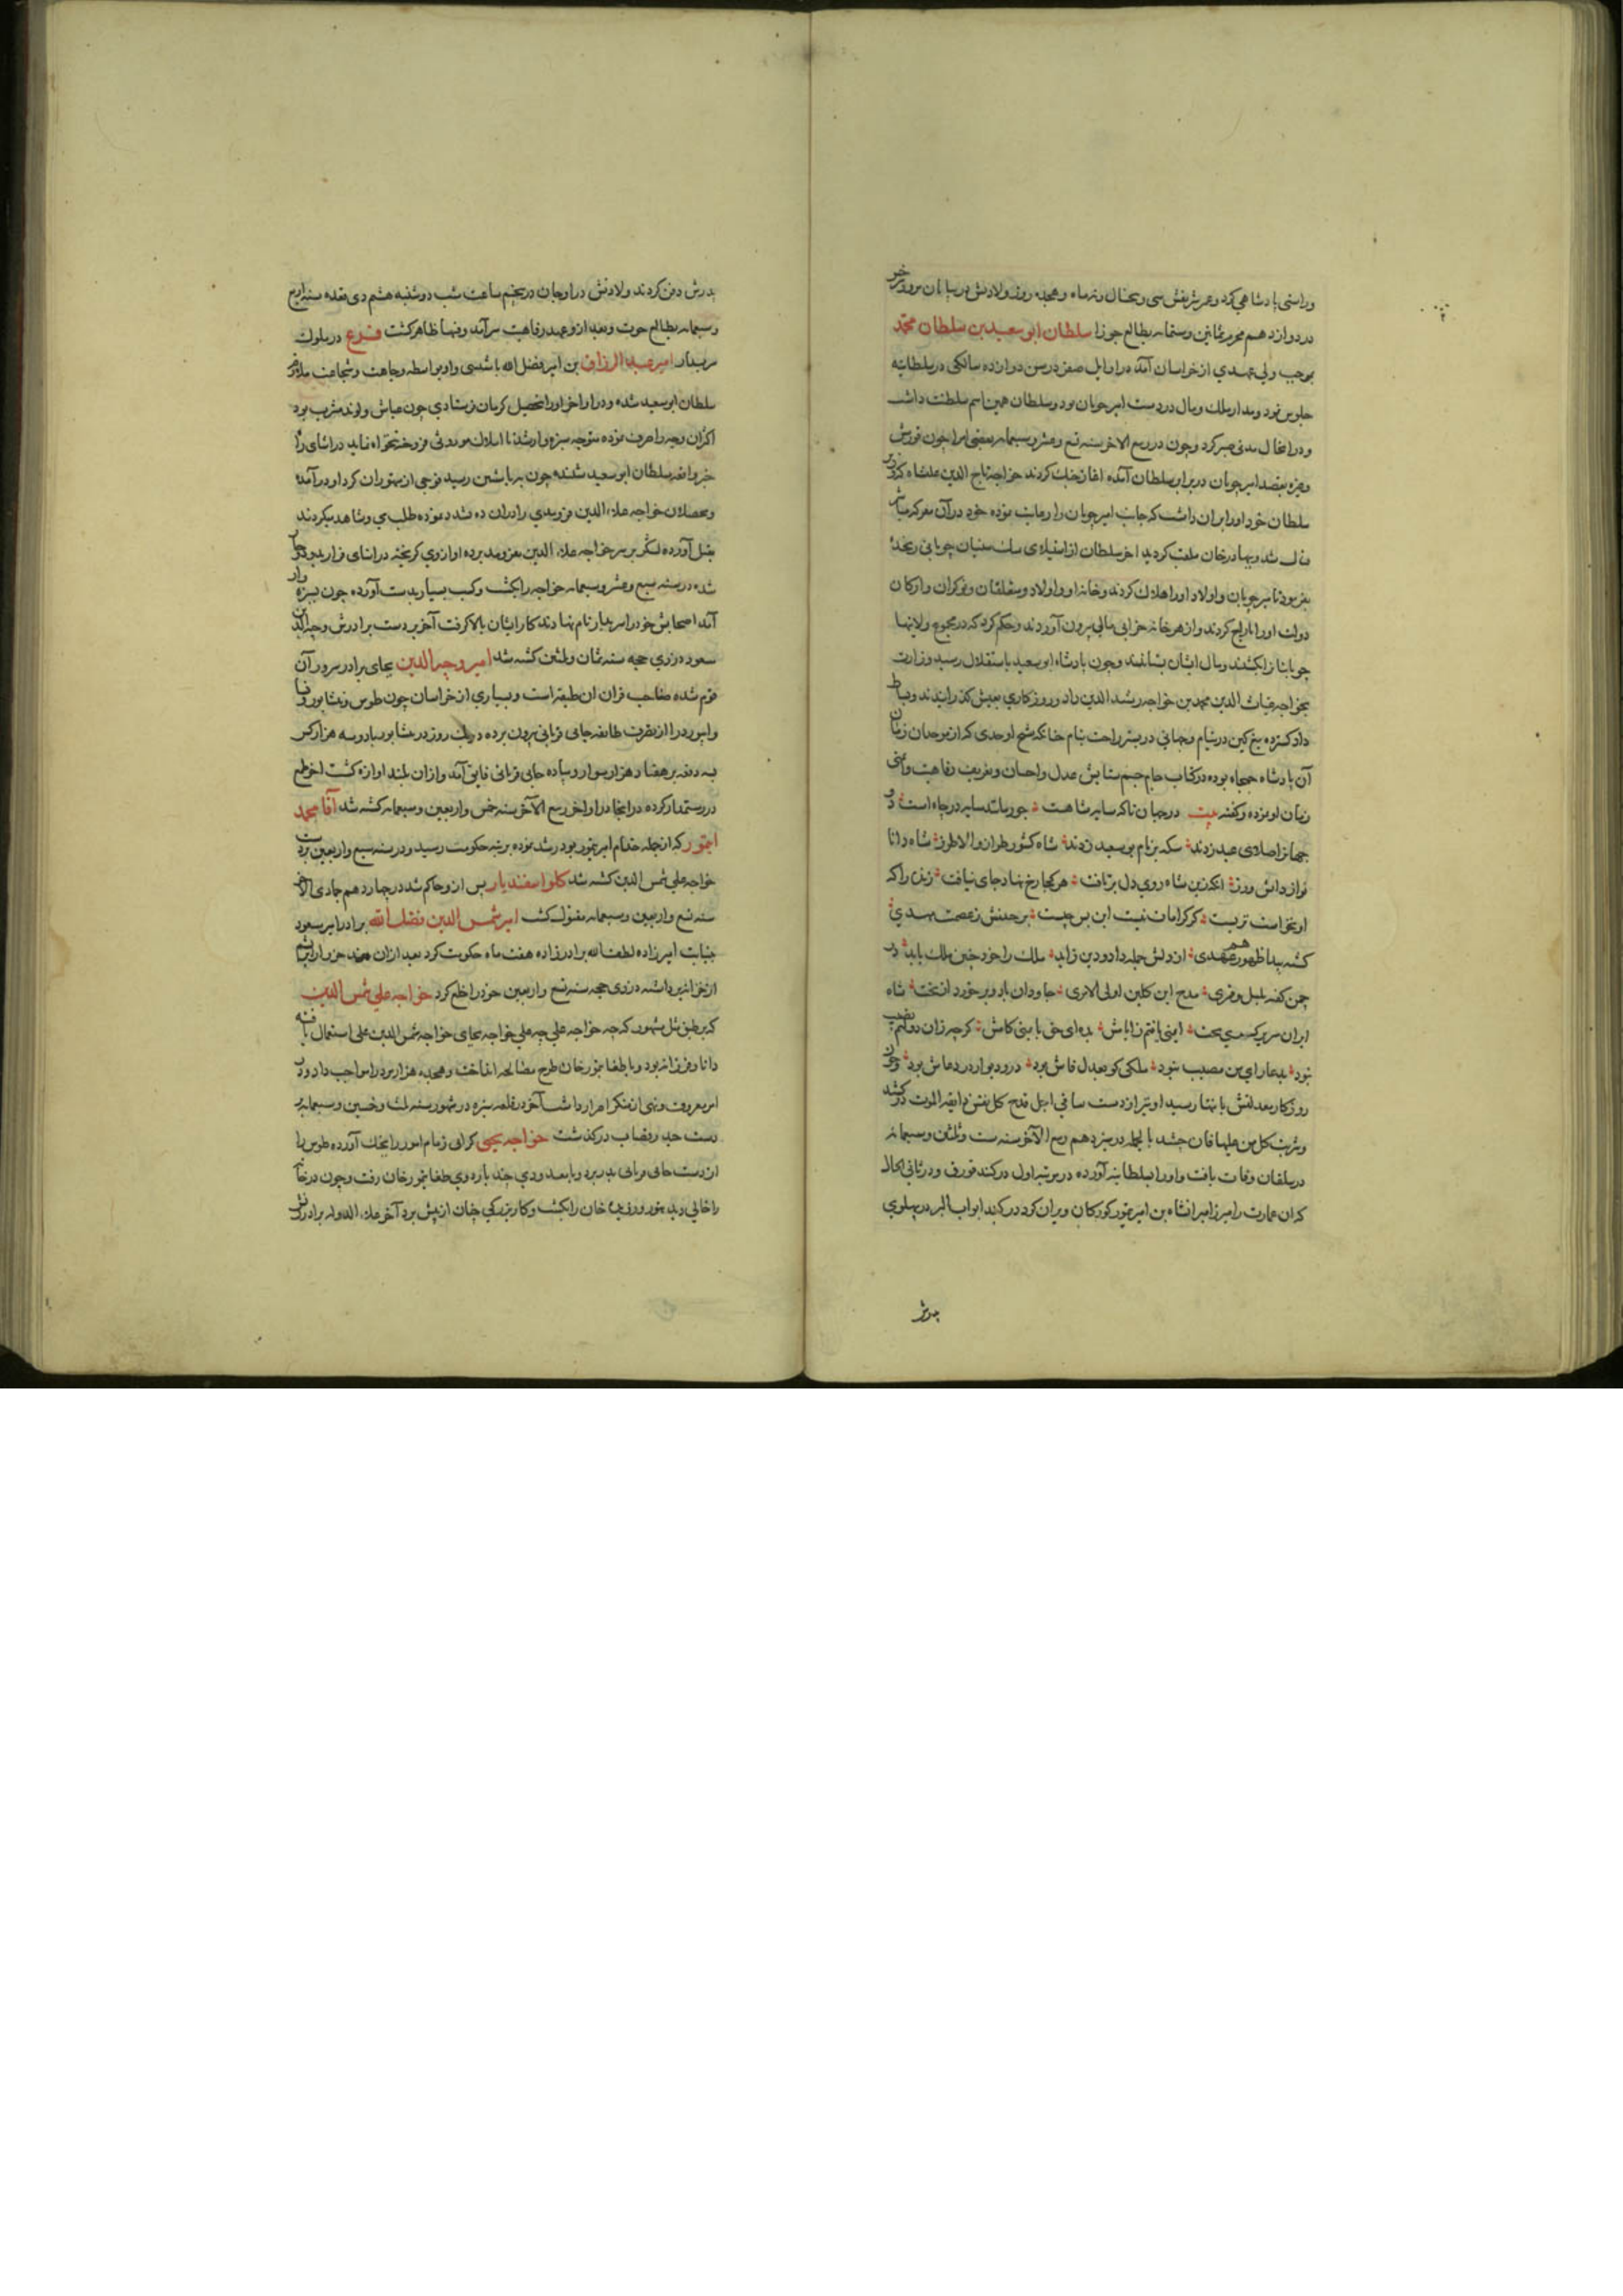 وراستی پادشاهی کرد و عمر شریفش سی و پنجسال و نه ماه و هجده روز ولادتش در بیابان سرخس
در دوازدهم محرم ثمانین و ستمایه بطالع جوزا سلطان ابوسعید بن سلطان محمد
بموجب ولی عهدی از خراسان آمده در اوایل صفر در سن دوازده سالگی در سلطانیه
جلوس نمود و مدار ملک و مال در دست امیر چوپان بود و سلطان همین اسم سلطنت داشت
و در انحال مدتی صبر کرد و چون در ربیع الاخر سنه تسع و عشر و سبعمایه بعضی امرا چون قورمشی
وغیره بقصد امیر چوپان در برابر سلطان آمده اغاز جنگ کردند خواجه تاج الدین علیشاه که وزیر
سلطان خود او را بران داشت که جانب امیر چوپان را رعایت نموده خود در آن معرکه مباشر
قتال شد و ببهادر خان ملقب کردید اخر سلطان از استیلای چوپانی رنجیده
بفرمود تا امیر چوپان و اولاد او را هلاک کردند و خانه او و اولاد و متعلقان و نوکران و ارکان
دولت او را تاراج کردند و از هر خانه خزانی مالی بیرون آوردند و حکم کرد که در مجموع ولایتها
چوپانیان را بکشند و مال ایشان بستانند و چون پادشاه ابوسعید باستقلال رسید وزارت
بخواجه غیاث الدین محمد بن خواجه رشید الدین داد و روزکاری بعیش کذرانیدند و بساط
داد کسترده تیغ کین در نیام و جهانی در بستر راحت بنام چنانکه شیخ اوحدی که از موحدان زمان
آن پادشاه جمجاه بوده در کتاب جام جم ستایش عدل و احسان و تعریف رفاهیت و امنی
زمان او نموده و کفته بیت در جهان تا که سایه شاهست جور مانند سایه در چاه است در
جهان را صلای عید زدند سکه بر نام بوسعید زدند شاه کشور طراز والا طرز شاه دانا
نواز دانش ورز انکه زین شاه روی دل برتافت هر کجا رخ نهاد جای نیافت زین را که
او نخواست تربیت کر کرامات نیست این پس چیست بر جبینش ز عصمت مهدی
کشته پیدا ظهور هم عهدی از دلش جمله داد و دین زاید ملک را خود چنین ملک باید در
چمن کفته بلبل و قمری مدح این کلبن اولی الامری جاودان باد و برخورد از بخت شاه
ایران سریر کسری تخت
نبود ملکی کو بعدل فاش بود در و دیوار در دعاش بود و چون
روزکار معدلتش بانتها رسید او نیز از دست ساقی اجل قدح کل نفس ذایقه الموت درکشید
و شربت کل من علیها فان چشید بالجمله در سیزدهم ربیع الآخر سنه ست و ثلثین و سبعمایه
در وفات یافت و او را بسلطانیه آورده در مرتبه اول در کنبد و در ثانی الحال
که آن عمارت را میرزا میرانشاه بن امیر تیمور کورکان ویران کرد در کنبد ابواب البر در پهلوی
پدرش
پدرش دفن کردند ولادتش در اوجان در پنجم ساعت شب دوشنبه هشتم ذی قعده سنه اربع
و سبعمایه بطالع حوت و بعد از و عهد رفاهیت سرآمد و فتنها ظاهر کشت فرع در ملوک
سربدار امیر عبد الرزاق بن امیر فضل الله باشتینی و او بواسطه وجاهت و شجاعت ملازم
سلطان ابوسعید شده و در اواخر او را بتحصیل کرمان فرستادی چون عیاش و لوند مشرب بود
اکثر آن وجه را صرف نموده متوجه سبزوار شد تا املاک موروثی فروخته تنخواه نماید در اثنای راه
خبر واقعه سلطان ابوسعید شنیده چون بباشتین رسید
و محصلان خواجه علاء الدین فریومدی را در آن ده تشدد نموده طلب می و شاهد میکردند
بقتل آورده لشکر بر سر خواجه علاء الدین بفریومد برده او از وی کریخته در اثنای فرار
شده در سنه سبع و عشر و سبعمایه خواجه را بکشت و کسب بسیار بدست آورده چون بسبزوار
آمد اصحابش خود را سربدار نام نهادند کار ایشان بالا کرفت آخر بر دست برادرش وجیه الدین
مسعود در ذی حجه سنه ثمان و ثلثین کشته شد امیر وجیه الدین بجای برادر سرور آن
قوم شده صاحب قران ان طبقه است و بسیاری از خراسان چون طوس و نیشابور و نسا
و ابیورد را از تصرف طایفه جانی قربانی بیرون برده در یک روز در نیشابور با دو سه هزار کس
به دفعه بر هفتاد هزار سوار و پیاده جانی قربانی فایق آمد و از ان بلند اوازه کشت اخر طمع
در رستمدار کرده در انجا در اواخر ربیع الآخر سنه خمس و اربعین و سبعمایه کشته شد آقا محمد
ایتمور که از جمله خدام امیر تیمور بود رشد نموده بر تبه حکومت رسید و در سنه سبع و اربعین بر دست
خواجه علی شمس الدین کشته شد کلو اسفندیار پس از و حاکم شد در چهاردهم جمادی الاخر
سنه تسع و اربعین و سبعمایه مقتول کشت امیر شمس الدین فضل الله برادر امیر مسعود
بنیابت امیرزاده لطف الله برادرزاده هفت ماه حکومت کرد بعد از ان
از خزانه برداشته در ذی حجه سنه تسع و اربعین خود را خلع کرد خواجه علی شمس الدین
که بر طبق مثل مشهور که چه خواجه علی چه علی خواجه بجای خواجه شمس الدین علی استعمال یافته
دانا و فرزانه بود و با طغا تیمور خان طرح مصالحه انداخت و هجده هزار مرد را مواجب داد و در
امر معروف و نهی از منکر اصرار داشت آخر در قلعه سبزه در شهور سنه ثلث و خمسین و سبعمایه بر
دست حیدر قصاب درکذشت خواجه یحیی کرابی زمام امور را بچنک آورده طوس را
از دست جانی قربانی بدر برد و با معدودی چند باردوی طغا تیمور خان رفت و چون درخانه
را خالی دید خان را بکشت و کار بزرکی چنان از پیش برد آخر علاء الدوله برادر زنش